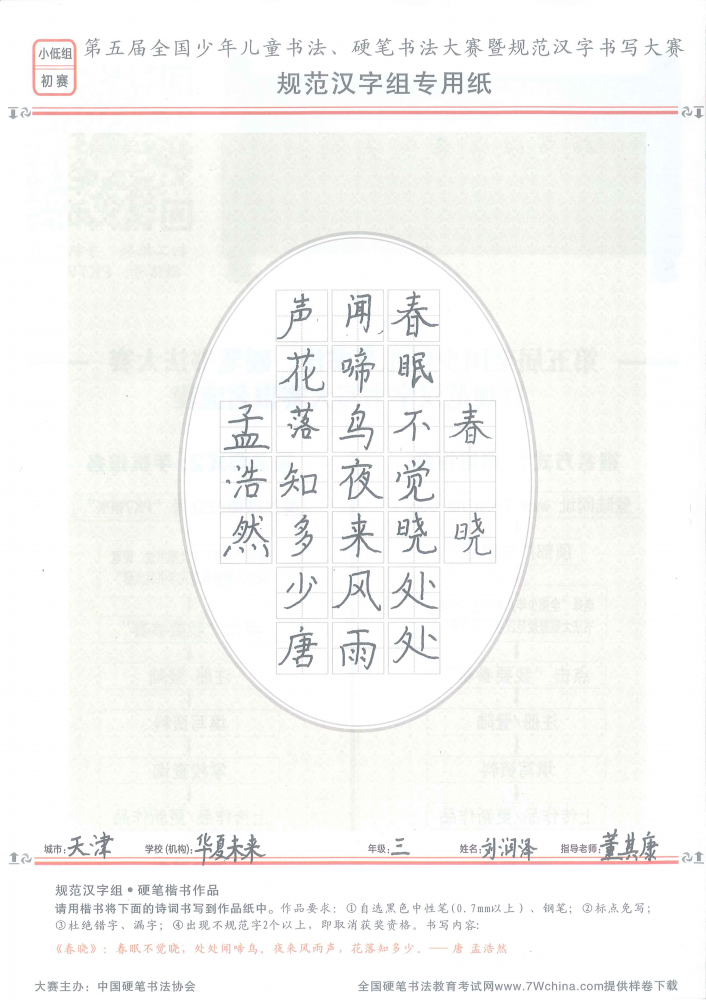 小低组
初赛
第五届全国少年儿童书法、硬笔书法大赛暨规范汉字书写大赛
规范汉字组专用纸
春晓
春眠不觉晓处处
闻啼鸟夜来风雨
声花落知多少唐
孟浩然
城市：天津 学校(机构)：华夏未来 年级：三 姓名：刘润泽 指导老师：董其康
规范汉字组•硬笔楷书作品
请用楷书将下面的诗词书写到作品纸中。作品要求：①自选黑色中性笔(0.7mm以上)、钢笔；②标点免写；
③杜绝错字、漏字；④出现不规范字2个以上，即取消获奖资格。书写内容：
《春晓》：春眠不觉晓，处处闻啼鸟。夜来风雨声，花落知多少。——唐 孟浩然
大赛主办：中国硬笔书法协会 全国硬笔书法教育考试网www.7Wchina.com提供样卷下载